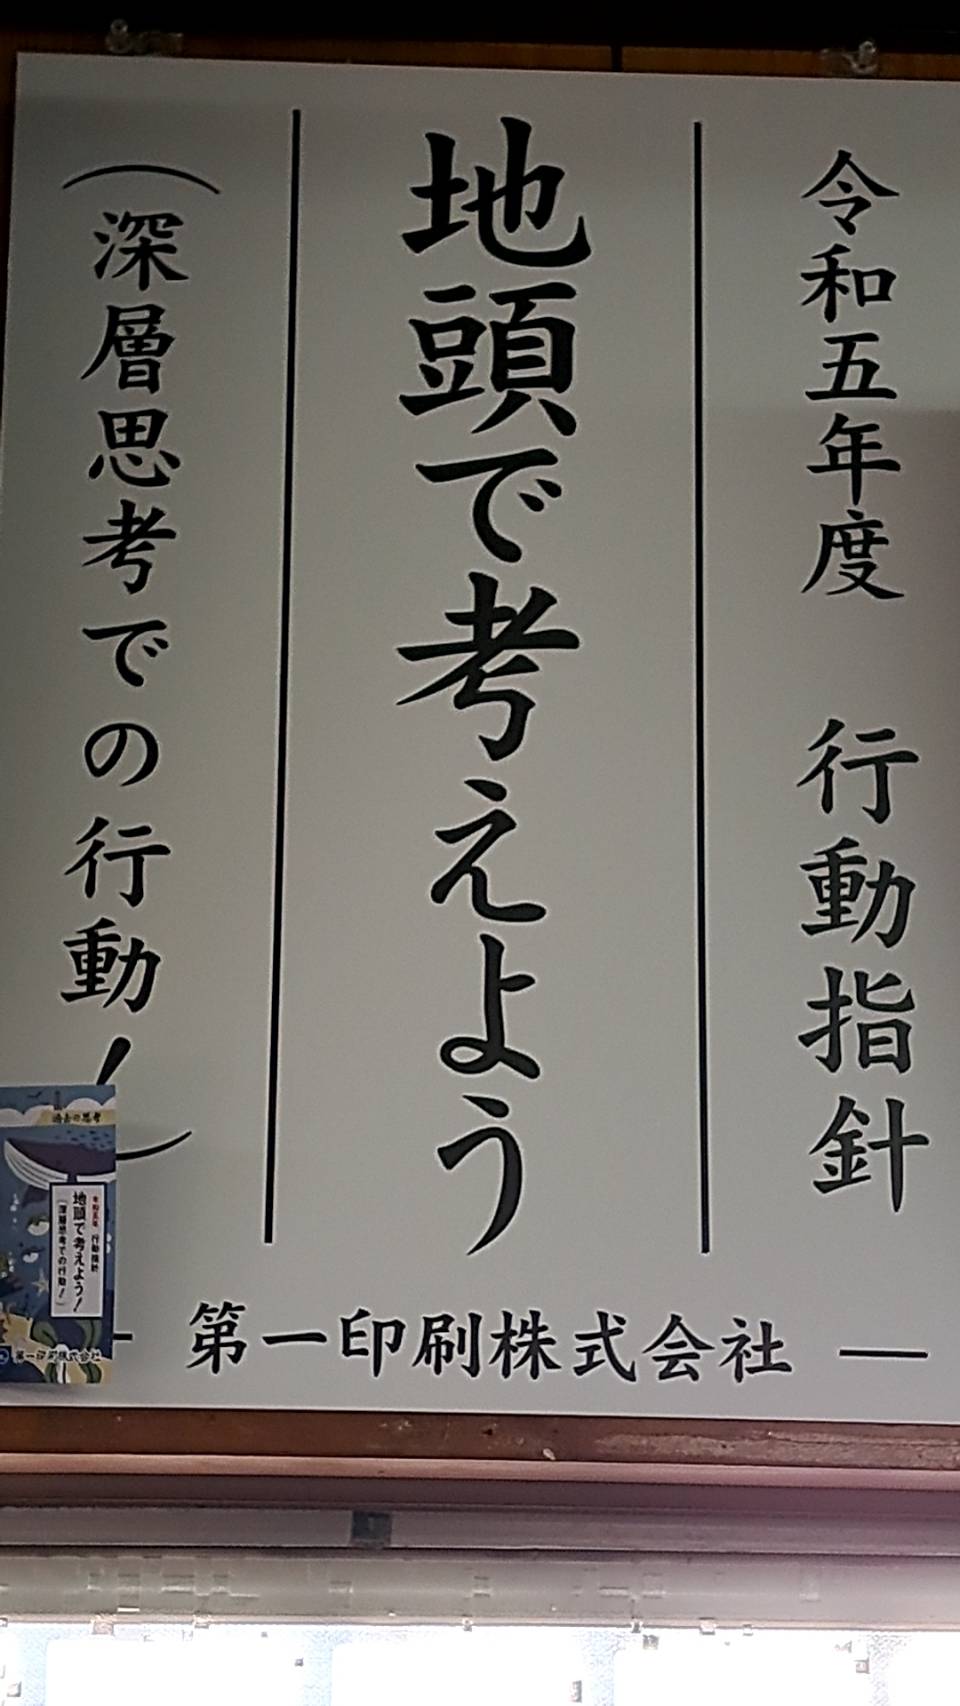 令和五年度 行動指針
地頭で考えよう
（深層思考での行動！）
— 第一印刷株式会社 —
過去の思考
行動指針
地頭で考えよう！
（深層思考での行動！）
第一印刷株式会社